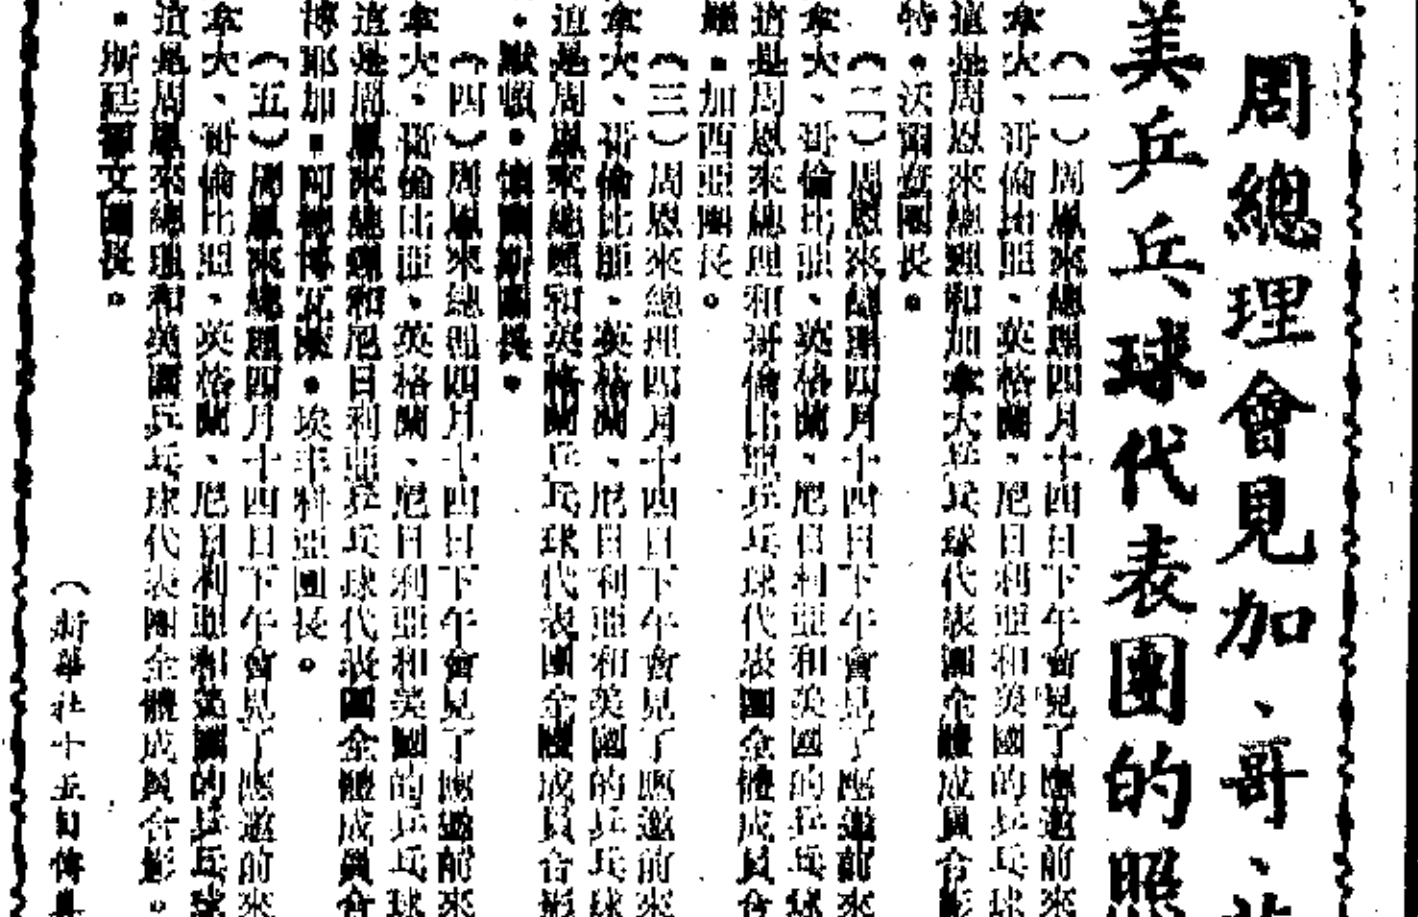 周總理會見加、哥、英
美乒乓球代表團的照
（一）周恩來總理四月十四日下午會見了應邀前來
拿大、哥倫比亞、英格蘭、尼日利亞和美國的乒乓球
這是周恩來總理和加拿大乒乓球代表團全體成員合影
特·沃爾登團長。
（二）周恩來總理四月十四日下午會見了應邀前來
拿大、哥倫比亞、英格蘭、尼日利亞和美國的乒乓球
這是周恩來總理和哥倫比亞乒乓球代表團全體成員合
·加西亞團長。
（三）周恩來總理四月十四日下午會見了應邀前來
拿大、哥倫比亞、英格蘭、尼日利亞和美國的乒乓球
這是周恩來總理和英格蘭乒乓球代表團全體成員合影
·團長。
（四）周恩來總理四月十四日下午會見了應邀前來
拿大、哥倫比亞、英格蘭、尼日利亞和美國的乒乓球
這是周恩來總理和尼日利亞乒乓球代表團全體成員合
博耶加·阿德博瓦·埃非科亞團長。
（五）周恩來總理四月十四日下午會見了應邀前來
拿大、哥倫比亞、英格蘭、尼日利亞和美國的乒乓球
這是周恩來總理和美國乒乓球代表團全體成員合影。
·斯廷霍文團長。
（新華社十五日傳真